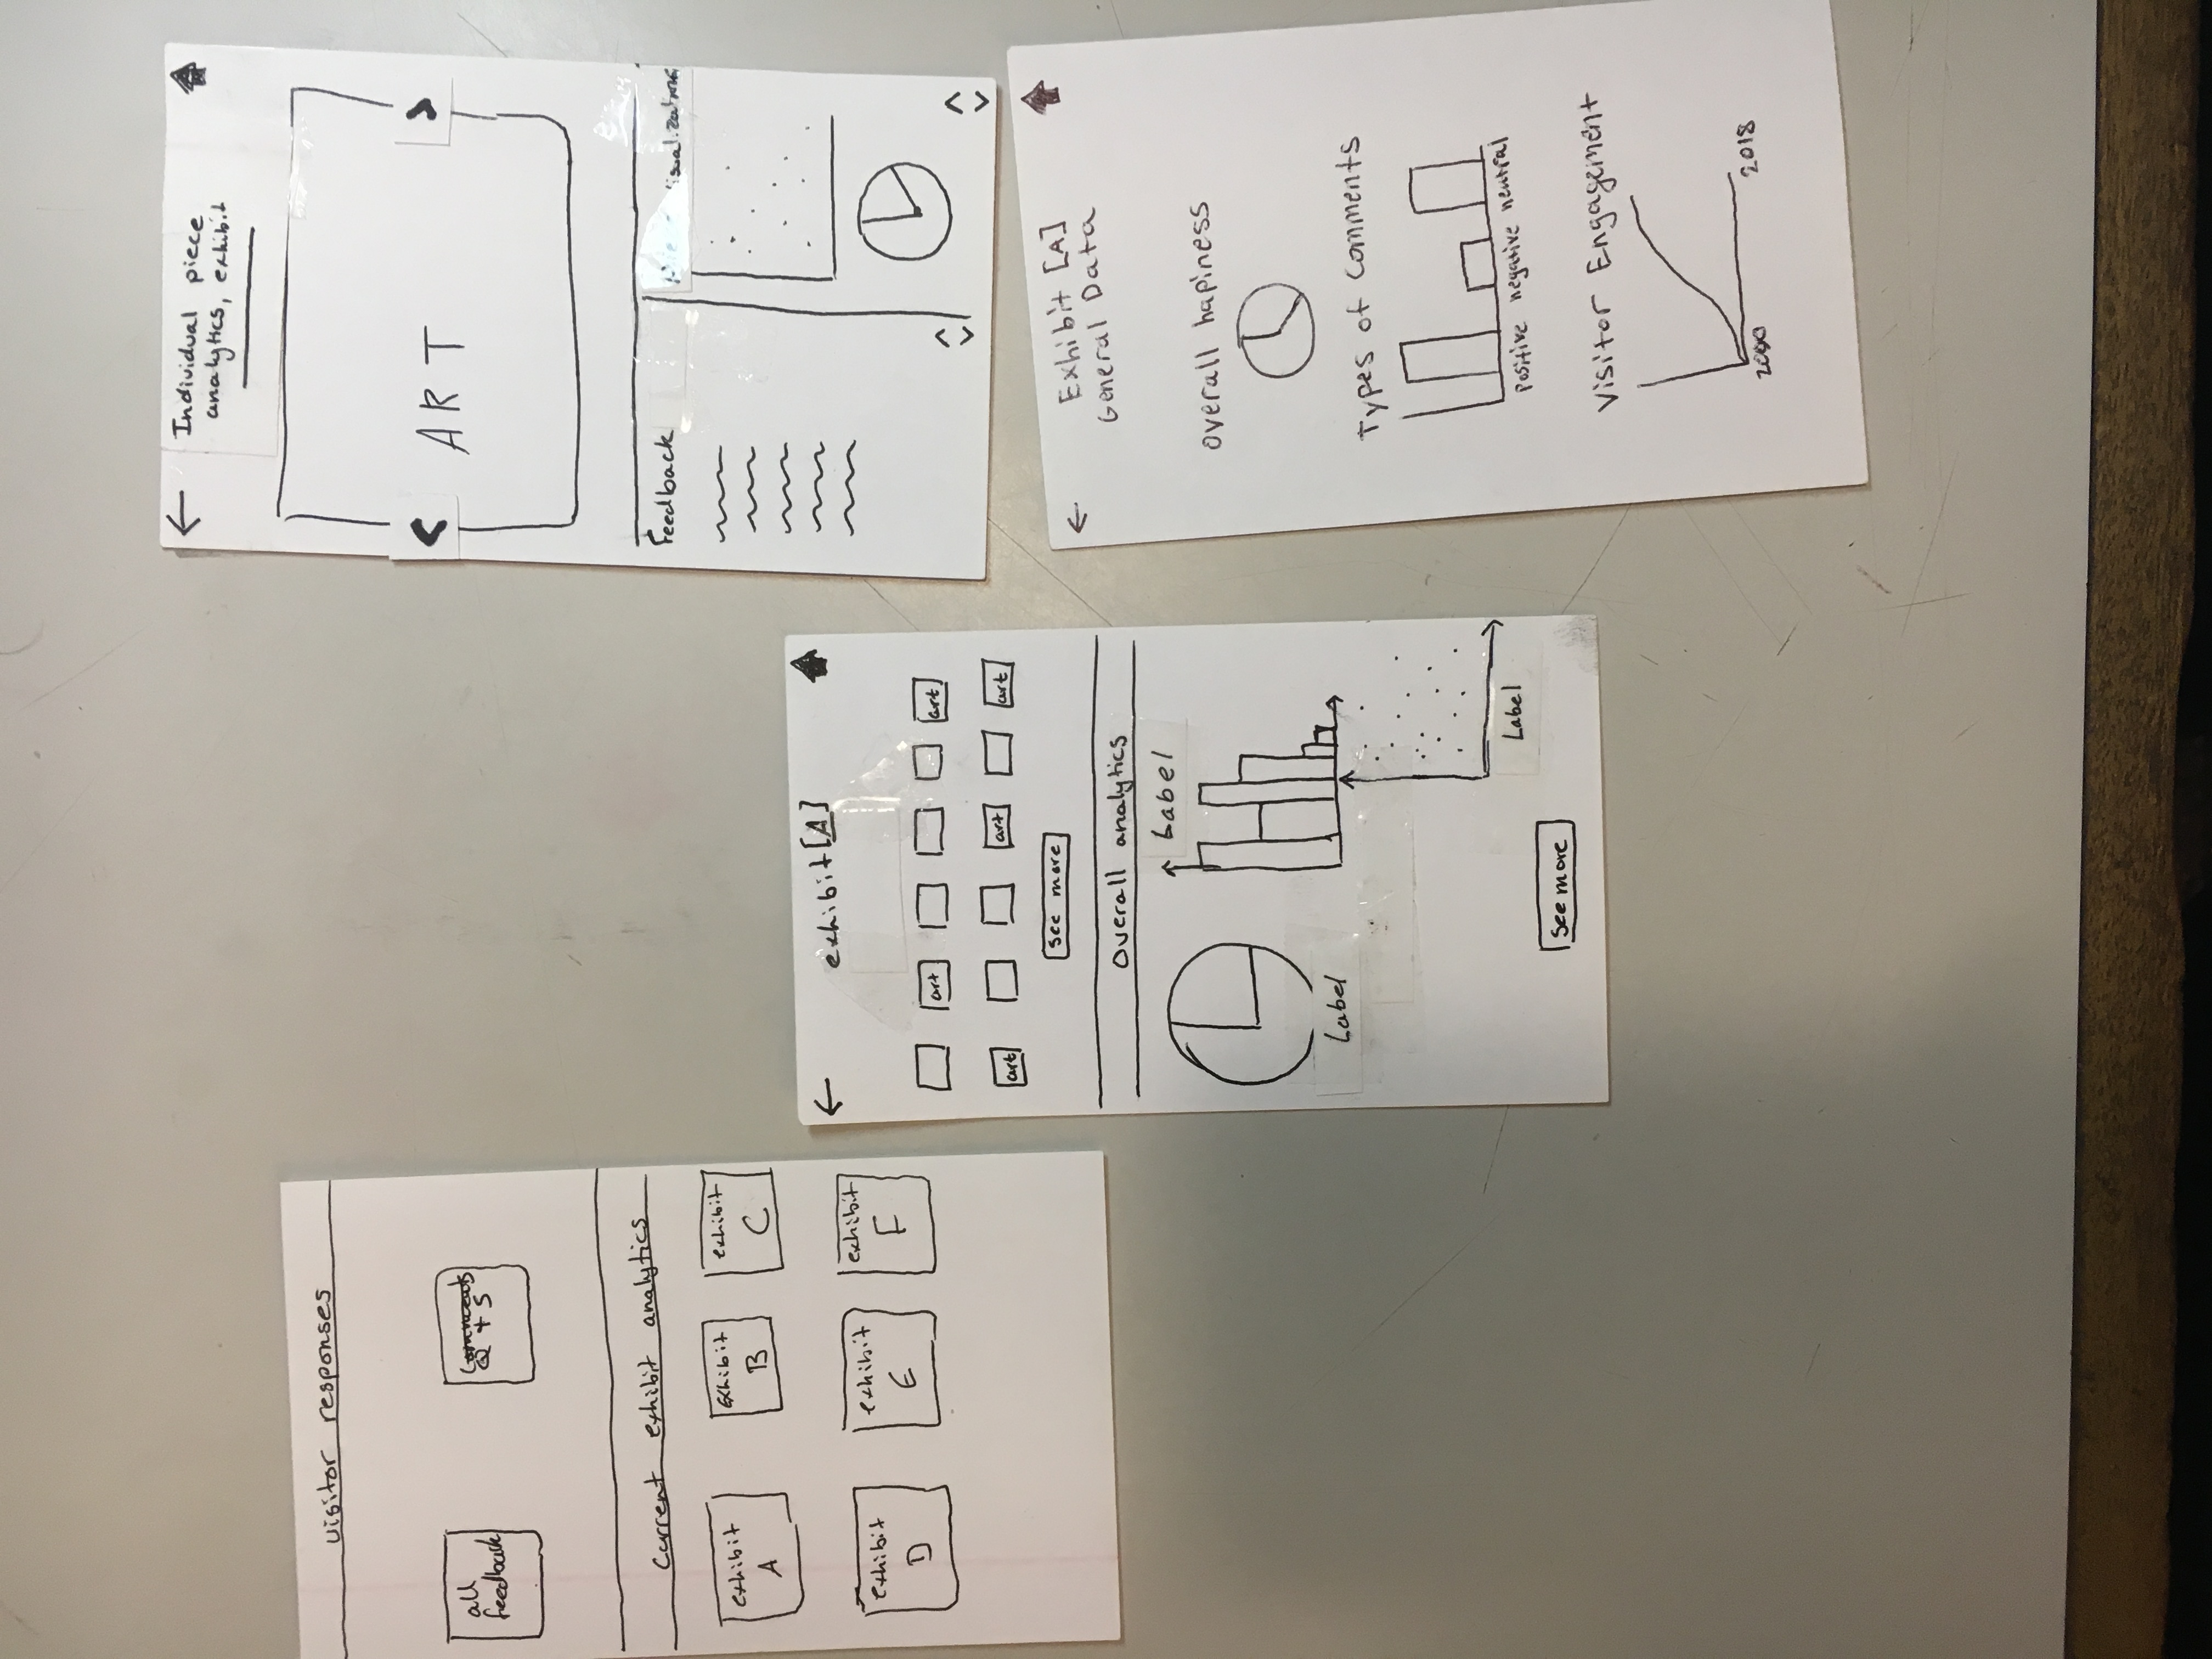 visitor responses
all
feedback
Comments
Q + S
Current exhibit analytics
exhibit
A
Exhibit
B
exhibit
C
exhibit
D
exhibit
E
exhibit
F
exhibit [A]
art
art
art
art
art
See more
Overall analytics
Label
Label
Label
See more
Individual piece
analytics, exhibit
ART
Feedback
Exhibit [A]
General Data
overall hapiness
Types of Comments
Positive negative neutral
Visitor Engagement
2000
2018